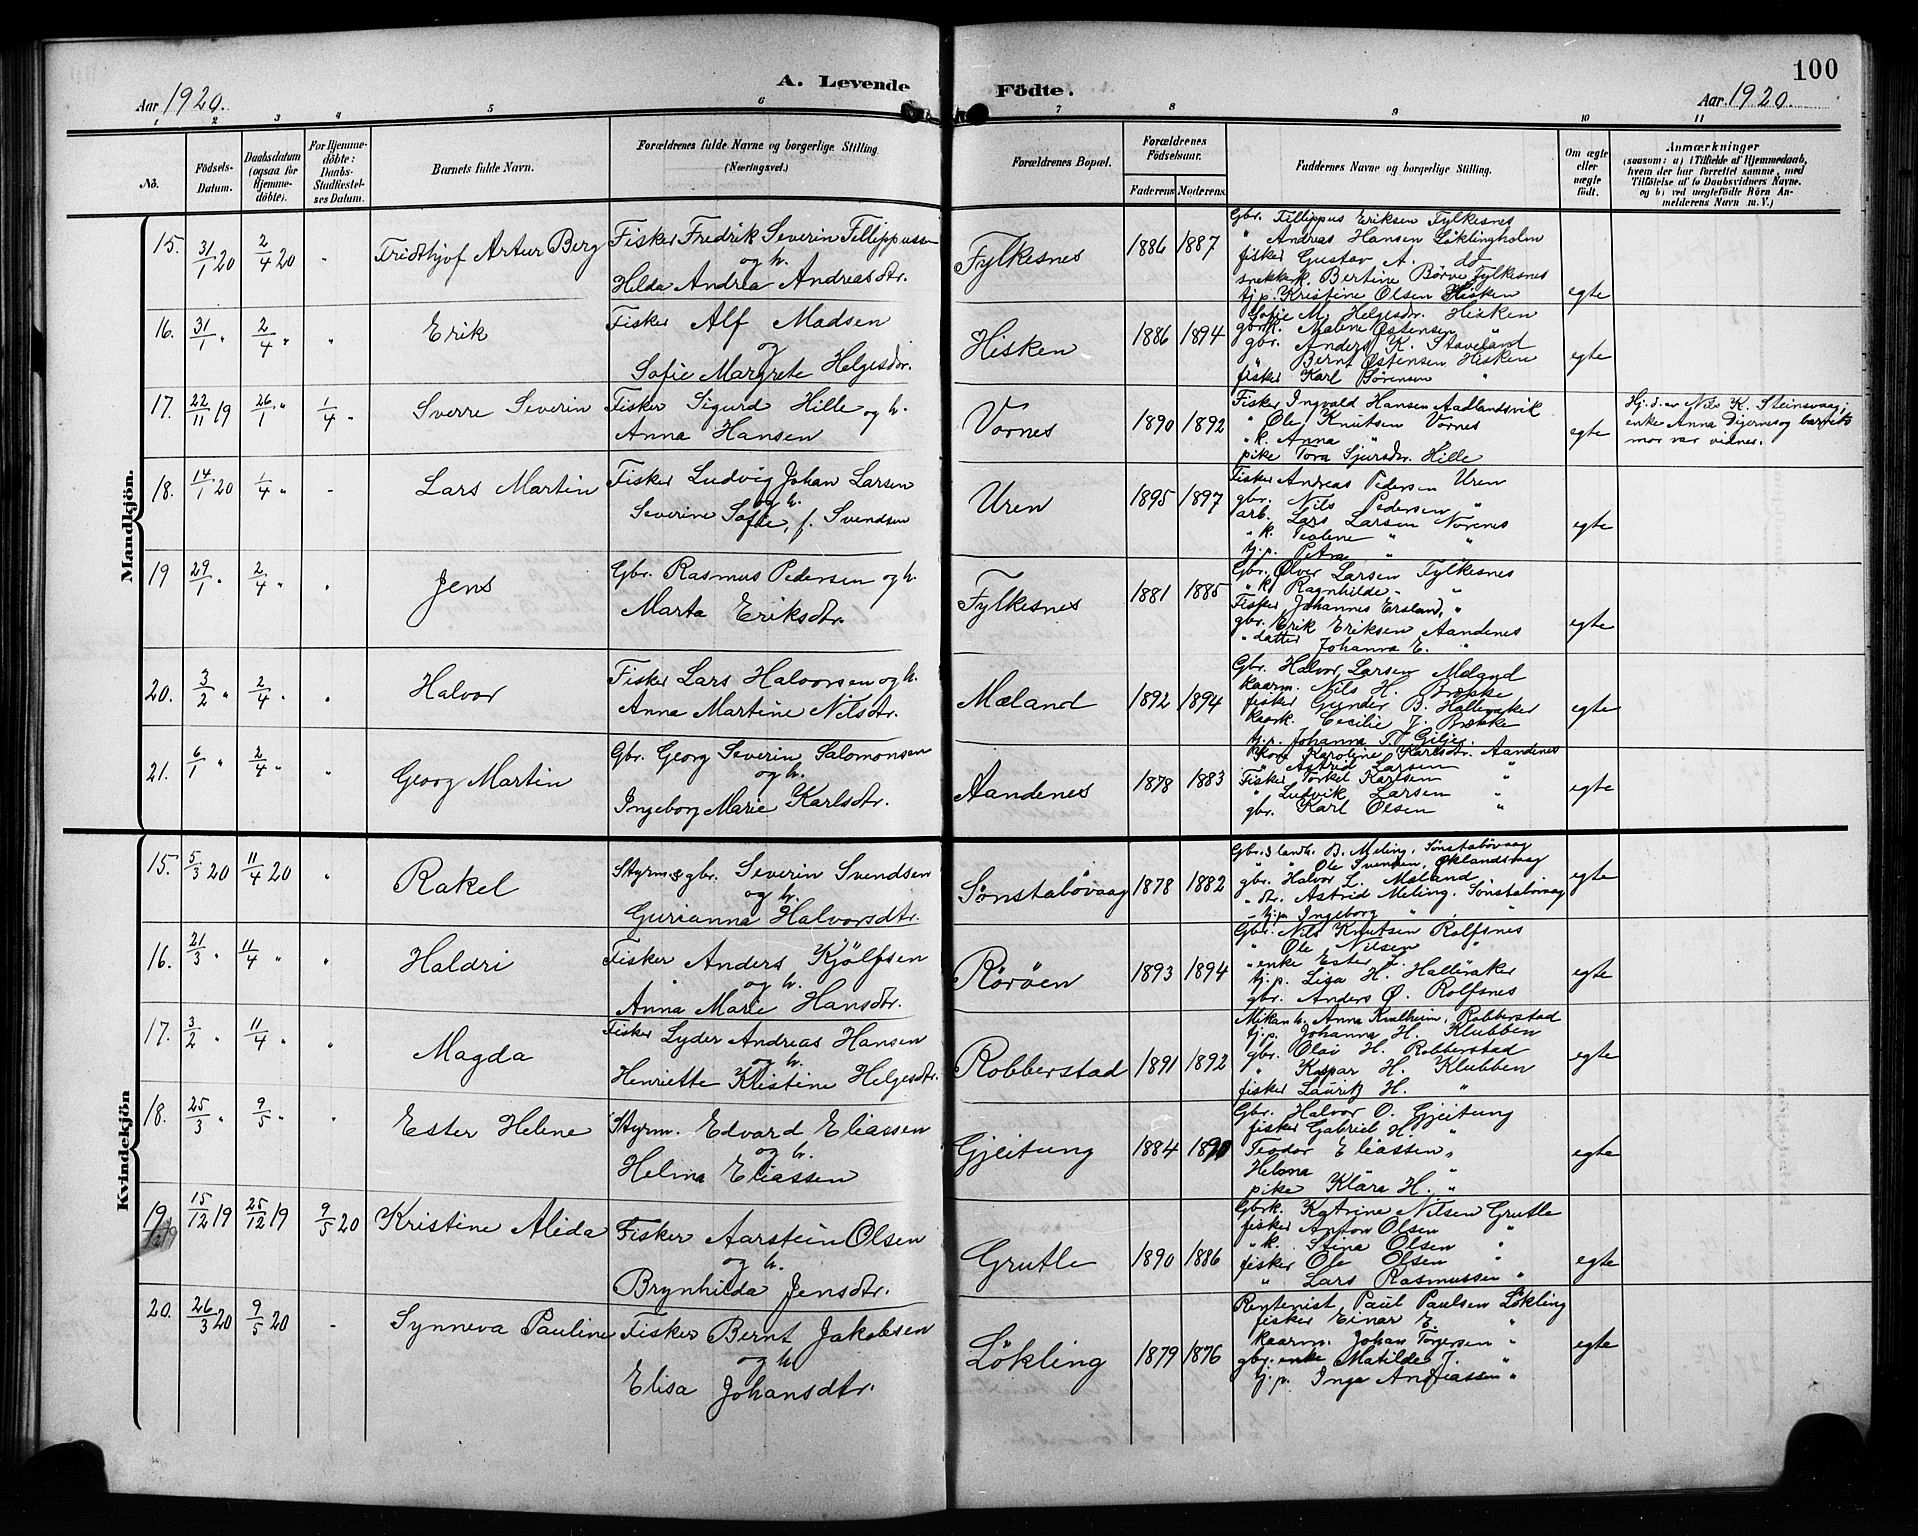 100
A. Levende Födte.
Aar 1920.
Aar 1920.
1 2 3 4 5 6 7 8 9 10 11
No.
Födsels-Datum.
Daabsdatum (ogsaa for Hjemmedöbte).
For Hjemmedöbte: Daabs-Stadfæstelses Datum.
Barnets fulde Navn.
Forældrenes fulde Navne og borgerlige Stilling. (Næringsvei.)
Forældrenes Bopæl.
Forældrenes Födselsaar.
Faderens. Moderens.
Faddernes Navne og borgerlige Stilling.
Om ægte eller uægte födt.
Anmærkninger
(saasom: a) i Tilfælde af Hjemmedaab, hvem der har forrettet samme, med Tilföielse af to Daabsvidners Navne. og b) ved uægtefödte Börn Anmelderens Navn m. V.)
Mandkjön.
15. 31/1 20 2/4 20 - Fridthjof Artur Berg
Fisker Fredrik Severin Fillippussen
og h.
Hilda Andrea Andreasdtr.
Fylkesnes 1886 1887
Gbr. Fillippus Eriksen Fylkesnes
" Andreas Hansen Löklingholm
fisker Gustav A. do
snekkerk. Bertine Börve Fylkesnes
tj.p. Kristine Olsen Hisken
egte
16. 31/1 " 2/4 " " Erik
Fisker Alf Madsen
og
Sofie Margrete Helgesdtr.
Hisken 1886 1894
Sofie M. Helgesdtr. Hisken
gbrk. Malene Östensen "
gbr. Anders K. Staveland
" Bernt Östensen Hisken
fisker Karl Sörensen "
egte
17. 22/11 19 26/1 " 1/4 " Sverre Severin
Fisker Sigurd Hille og h.
Anna Hansen
Vornes 1890 1892
Fisker Ingvald Hansen Aadlandsvik
" Ole Knutsen Vornes
" k. Anna "
pike Tora Sjursdtr. Hille
egte
Hj.d. av Nils K. Steinsvaag;
enke Anna Digernes og barnets
mor var vidner.
18. 14/1 20 1/4 " - Lars Martin
Fisker Ludvig Johan Larsen
og h.
Severine Sofie, f. Svendsen
Uren 1895 1897
Fisker Andreas Pedersen Uren
gbr. Nils Pedersen "
arb. Lars Larsen Norenes
" k. Teoline " "
tj.p. Petra "
egte
19 29/1 " 2/4 " " Jens
Gbr. Rasmus Pedersen og h.
Marta Eriksdtr.
Fylkesnes 1881 1885
Gbr. Ölver Larsen Fylkesnes
" k. Ragnhilde - "
Fisker Johannes Ersland, "
gbr. Erik Eriksen Aandenes
" datter Johanna E. "
egte
20. 3/2 " 2/4 " " Halvor
Fisker Lars Halvorsen og h.
Anna Martine Nilsdtr.
Mæland 1892 1894
Gbr. Halvor Larsen Mæland
kaarm. Nils H. Brække
fisker Gunder B. Halleraker
kaark. Cecilie J. Brække
tj.p. Johanna T. Gilje.
egte
21. 6/1 " 2/4 " " Georg Martin
Gbr. Georg Severin Salomonsen
og h.
Ingeborg Marie Karlsdtr.
Aandenes 1878 1883
Kone Karoline Karlsdtr. Aandenes
" Astrid Larsen "
Fisker Torkel Karlsen "
" Ludvik Larsen "
gbr. Karl Olsen "
egte
Kvindekjön
15. 5/3 20 11/4 20 " Rakel
Styrm. & gbr. Severin Svendsen
og h.
Gurianna Halvorsdtr.
Sönstabövaag 1878 1882
Gbr. & landh. B. Meling, Sönstabövaag
" " Ole Svendsen, Öklandsvaag
gbr. Halvor L. Mæland
" dtr. Astrid Meling, Sönstabövaag
- tj.p. Ingeborg " "
egte
16. 21/3 " 11/4 " " Haldri
Fisker Anders Kjölfsen
og h.
Anna Marie Hansdtr.
Röröen 1893 1894
Gbr. Nils Knutsen Rolfsnes
" Ole Nilsen "
" enke Ester L. "
tj.p. Lisa H. Halleraker
gbr. Anders Ö. Rolfsnes
egte
17. 3/2 " 11/4 " " Magda
Fisker Lyder Andreas Hansen
og h.
Henriette Kristine Helgesdtr.
Robberstad 1891 1892
Mikan h. Anna Kvalheim, Robberstad
tj.p. Johanna H. Klubben
gbr. Olav H. Robberstad
" Kaspar H. Klubben
fisker Lauritz H. "
egte
18. 25/3 " 9/5 " " Ester Helene
Styrm. Edvard Eliassen
og h.
Helma Eliassen
Gjeitung 1884 1890
Gbr. Halvor O. Gjeitung
fisker Gabriel H. "
Teodor Eliassen "
Helena "
pike Klara H. "
egte
19. 15/12 19 25/12 19 9/5 20 Kristine Alida
Fisker Aarstein Olsen
og h.
Brynhilda Jensdtr.
Grutle 1890 1886
Gbrk. Katrine Nilsen Grutle
fisker Anton Olsen "
" k. Stina Olsen "
fisker Ole Olsen "
" Lars Rasmussen "
egte
20. 26/3 20 9/5 20 - Synneva Pauline
Fisker Bernt Jakobsen
og h.
Elisa Johansdtr.
Lökling 1879 1876
Rentenist Paul Paulsen Lökling
fisker Einar E. "
kaarm. Johan Torgersen "
gbr. enke Matilde J. "
tj.p. Inga Andreassen "
egte